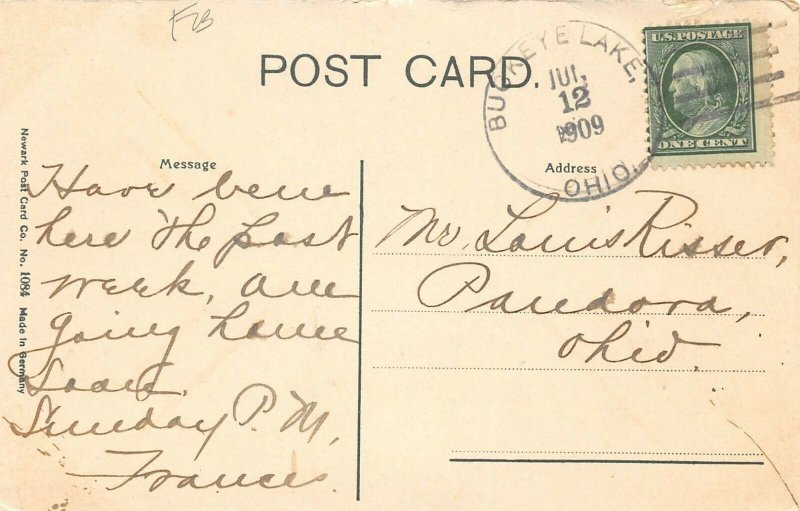 FLB
POST CARD.
BUCKEYE LAKE,
JUL
12
1909
OHIO.
U.S. POSTAGE
ONE CENT
Newark Post Card Co. No. 1084 Made in Germany
Message
Have bene
here the past
week, am
going home
soon.
Sunday P.M,
Frances
Address
Mr. Louis Risser,
Pandora,
Ohio.